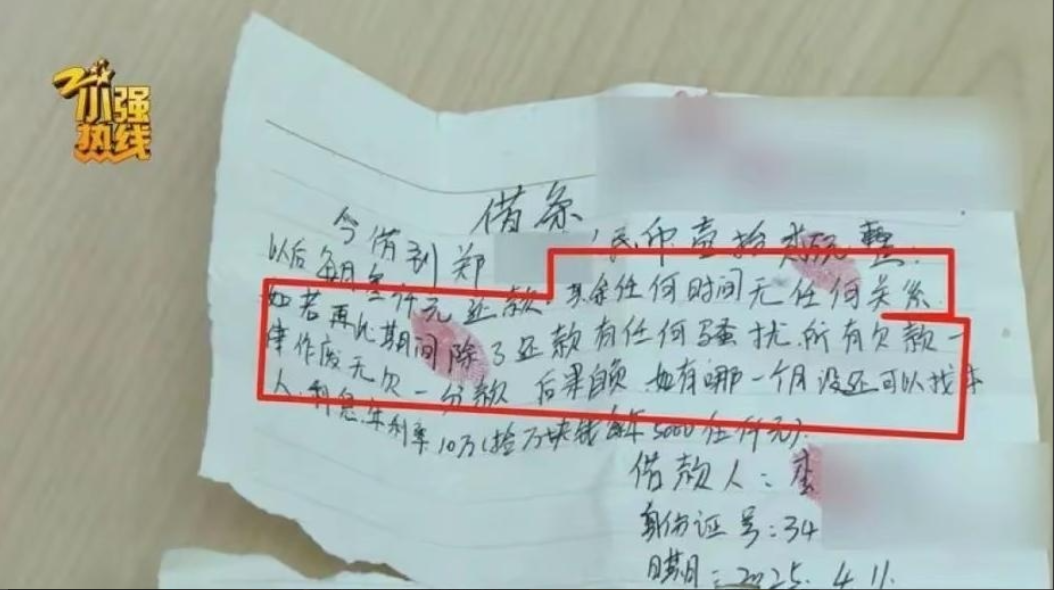 小强
热线
借条
今借到郑 民币壹拾 元整.
以后每月叁仟元还款,其余任何时间无任何关系.
如若再此期间除了还款有任何骚扰.所有欠款一
律作废无欠一分款 后果自负.如有哪一个月没还可以找本
人.利息.年利率10万(拾万块钱每年5000伍仟元).
借款人:李
身份证号:34
日期:2025.4.11.